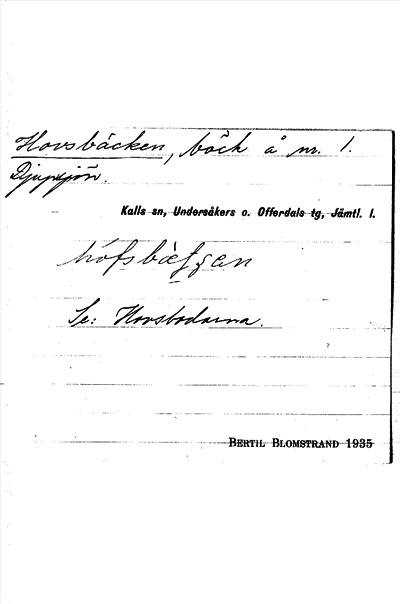 Hovsbäcken, bäck å nr. 1.
Djupsjön.
Kalls sn, Undersåkers o. Offerdals tg, Jämtl. l.
Se: Hovsbodarna.
BERTIL BLOMSTRAND 1935